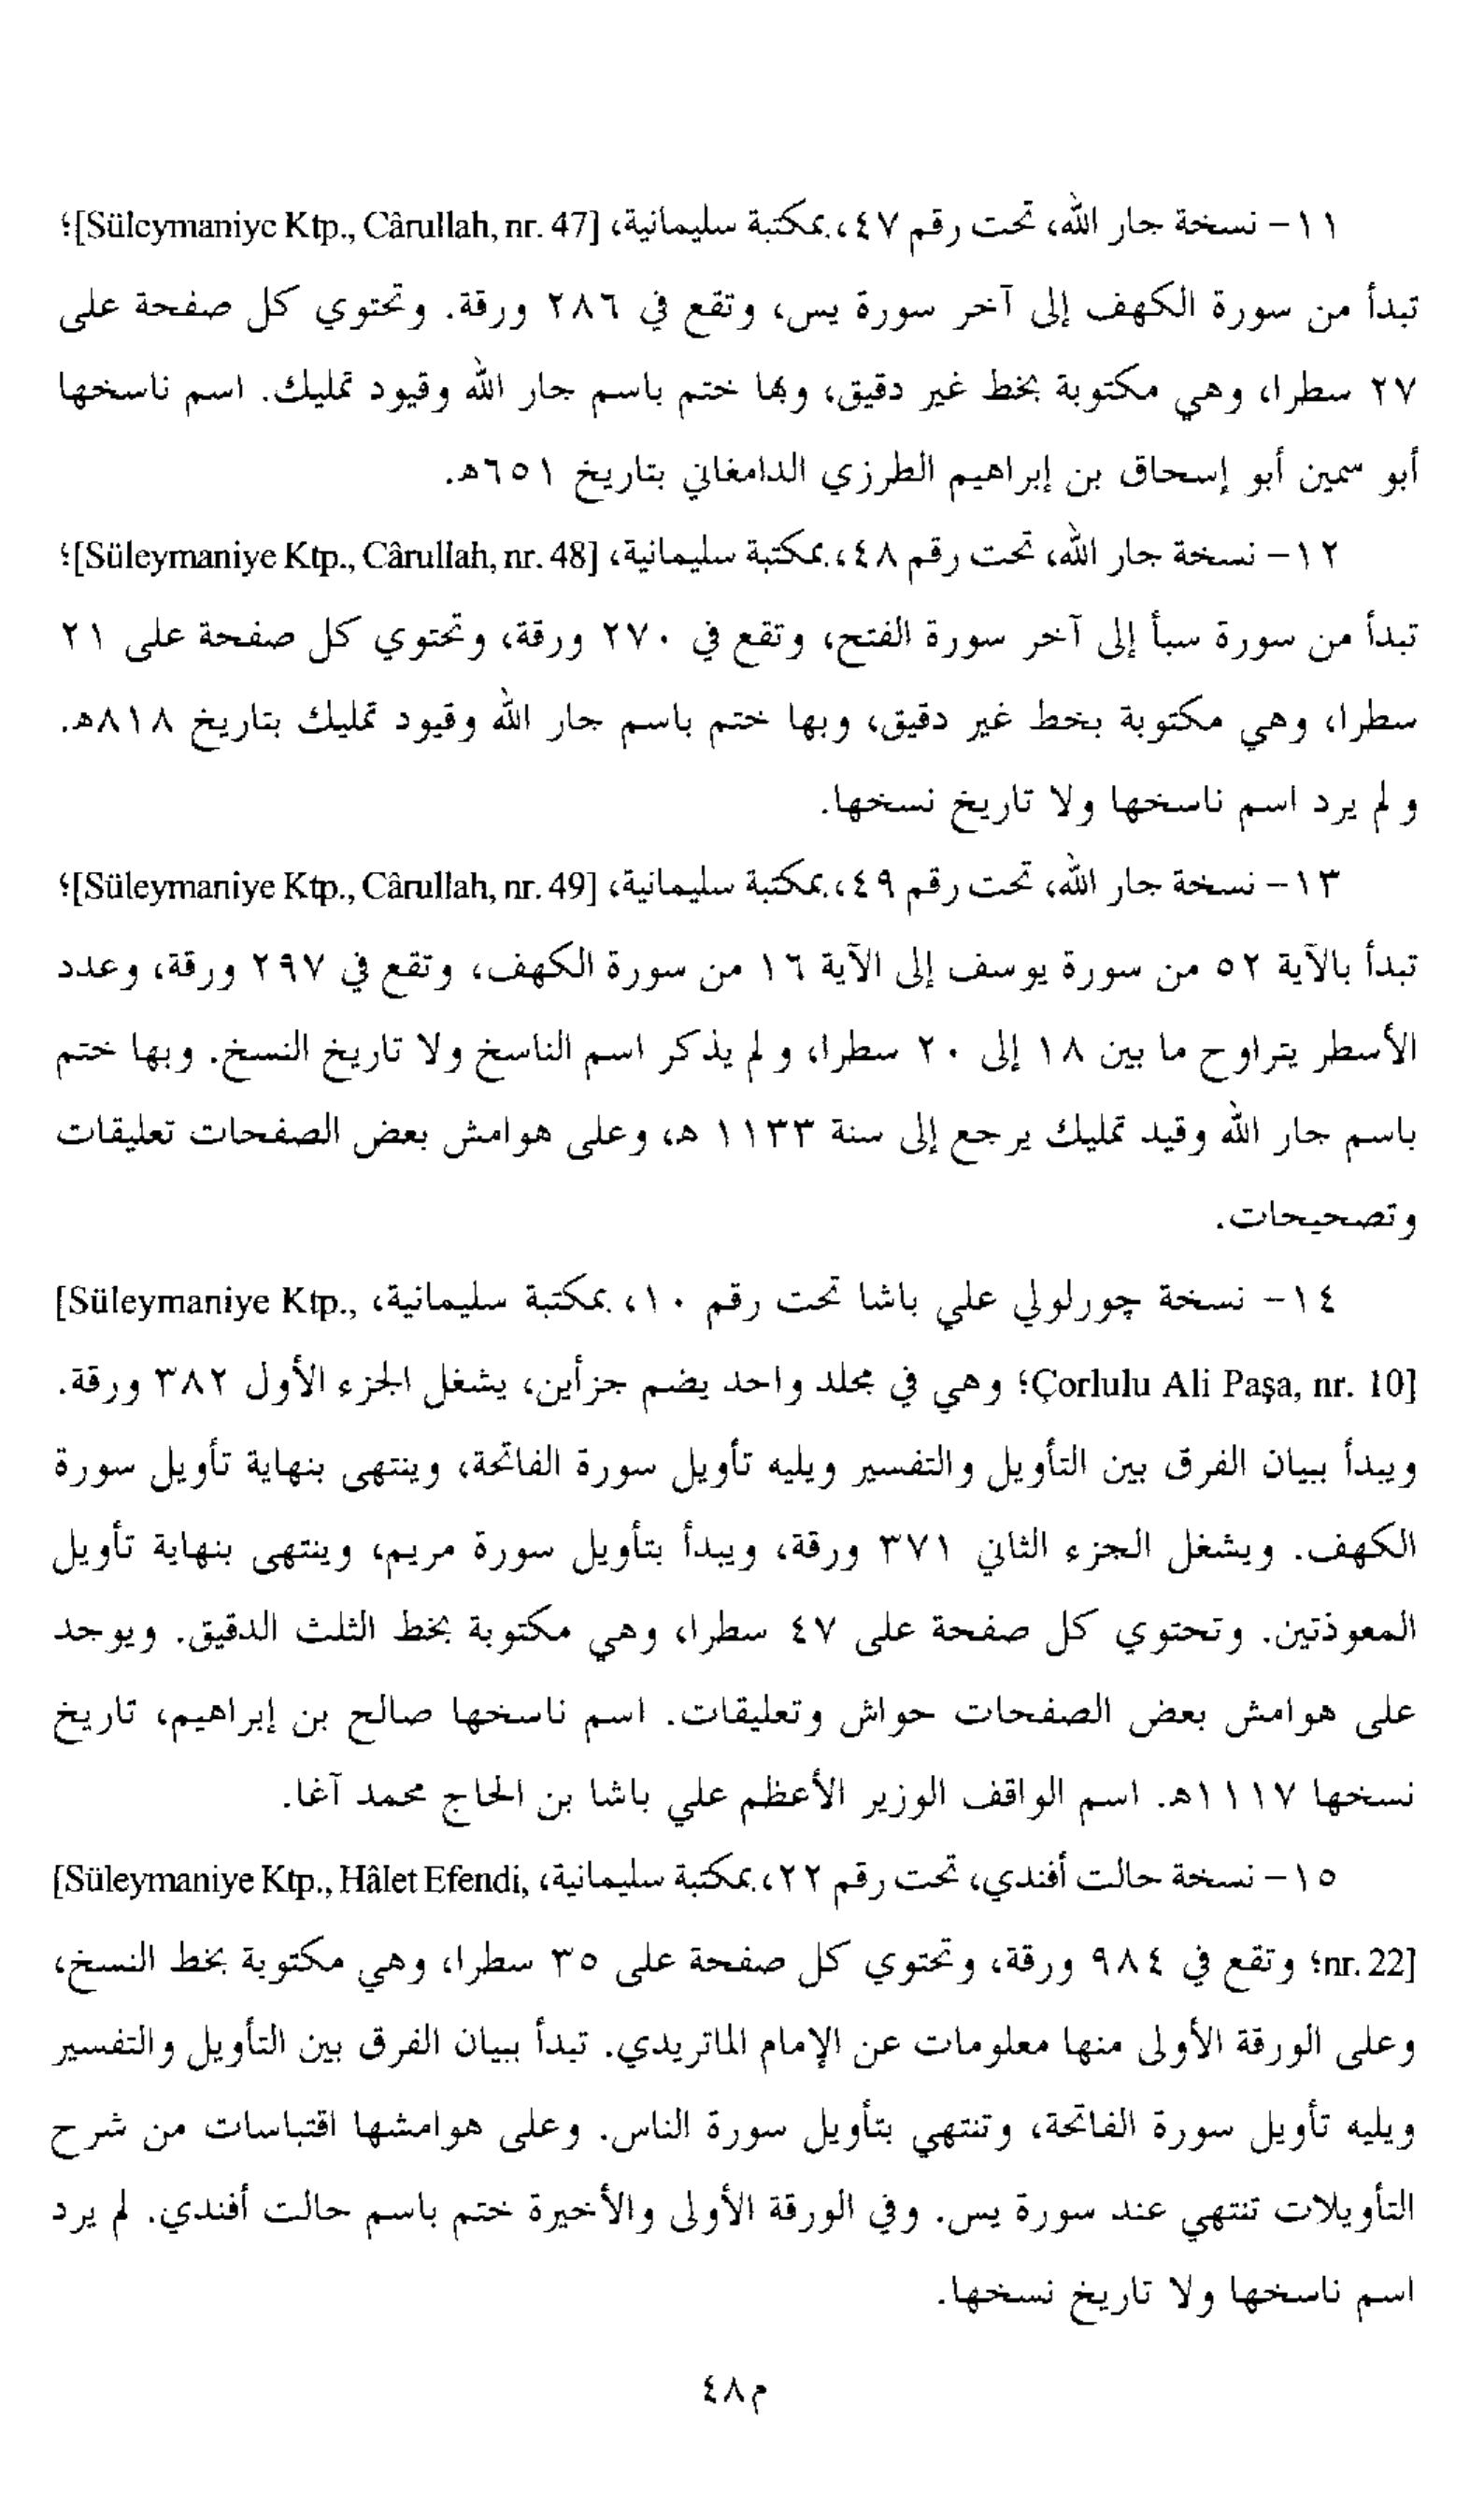 ١١- نسخة جار الله، تحت رقم ٤٧، بمكتبة سليمانية، [Süleymaniye Ktp., Cârullah, nr. 47]؛
تبدأ من سورة الكهف إلى آخر سورة يس، وتقع في ٢٨٦ ورقة. وتحتوي كل صفحة على
٢٧ سطرا، وهي مكتوبة بخط غير دقيق، وبها ختم باسم جار الله وقيود تمليك. اسم ناسخها
أبو سمين أبو إسحاق بن إبراهيم الطرزي الدامغاني بتاريخ ٦٥١هـ.
١٢- نسخة جار الله، تحت رقم ٤٨، بمكتبة سليمانية، [Süleymaniye Ktp., Cârullah, nr. 48]؛
تبدأ من سورة سبأ إلى آخر سورة الفتح، وتقع في ٢٧٠ ورقة، وتحتوي كل صفحة على ٢١
سطرا، وهي مكتوبة بخط غير دقيق، وبها ختم باسم جار الله وقيود تمليك بتاريخ ٨١٨هـ.
ولم يرد اسم ناسخها ولا تاريخ نسخها.
١٣- نسخة جار الله، تحت رقم ٤٩، بمكتبة سليمانية، [Süleymaniye Ktp., Cârullah, nr. 49]؛
تبدأ بالآية ٥٢ من سورة يوسف إلى الآية ١٦ من سورة الكهف، وتقع في ٢٩٧ ورقة، وعدد
الأسطر يتراوح ما بين ١٨ إلى ٢٠ سطرا، ولم يذكر اسم الناسخ ولا تاريخ النسخ. وبها ختم
باسم جار الله وقيد تمليك يرجع إلى سنة ١١٣٣ هـ، وعلى هوامش بعض الصفحات تعليقات
وتصحيحات.
١٤- نسخة چورلولي علي باشا تحت رقم ١٠، بمكتبة سليمانية، [Süleymaniye Ktp.,
Çorlulu Ali Paşa, nr. 10]؛ وهي في مجلد واحد يضم جزأين، يشغل الجزء الأول ٣٨٢ ورقة.
ويبدأ ببيان الفرق بين التأويل والتفسير ويليه تأويل سورة الفاتحة، وينتهى بنهاية تأويل سورة
الكهف. ويشغل الجزء الثاني ٣٧١ ورقة، ويبدأ بتأويل سورة مريم، وينتهى بنهاية تأويل
المعوذتين. وتحتوي كل صفحة على ٤٧ سطرا، وهي مكتوبة بخط الثلث الدقيق. ويوجد
على هوامش بعض الصفحات حواش وتعليقات. اسم ناسخها صالح بن إبراهيم، تاريخ
نسخها ١١١٧هـ. اسم الواقف الوزير الأعظم علي باشا بن الحاج محمد آغا.
١٥- نسخة حالت أفندي، تحت رقم ٢٢، بمكتبة سليمانية، [Süleymaniye Ktp., Hâlet Efendi,
nr. 22]؛ وتقع في ٩٨٤ ورقة، وتحتوي كل صفحة على ٣٥ سطرا، وهي مكتوبة بخط النسخ،
وعلى الورقة الأولى منها معلومات عن الإمام الماتريدي. تبدأ ببيان الفرق بين التأويل والتفسير
ويليه تأويل سورة الفاتحة، وتنتهي بتأويل سورة الناس. وعلى هوامشها اقتباسات من شرح
التأويلات تنتهي عند سورة يس. وفي الورقة الأولى والأخيرة ختم باسم حالت أفندي. لم يرد
اسم ناسخها ولا تاريخ نسخها.
م٤٨